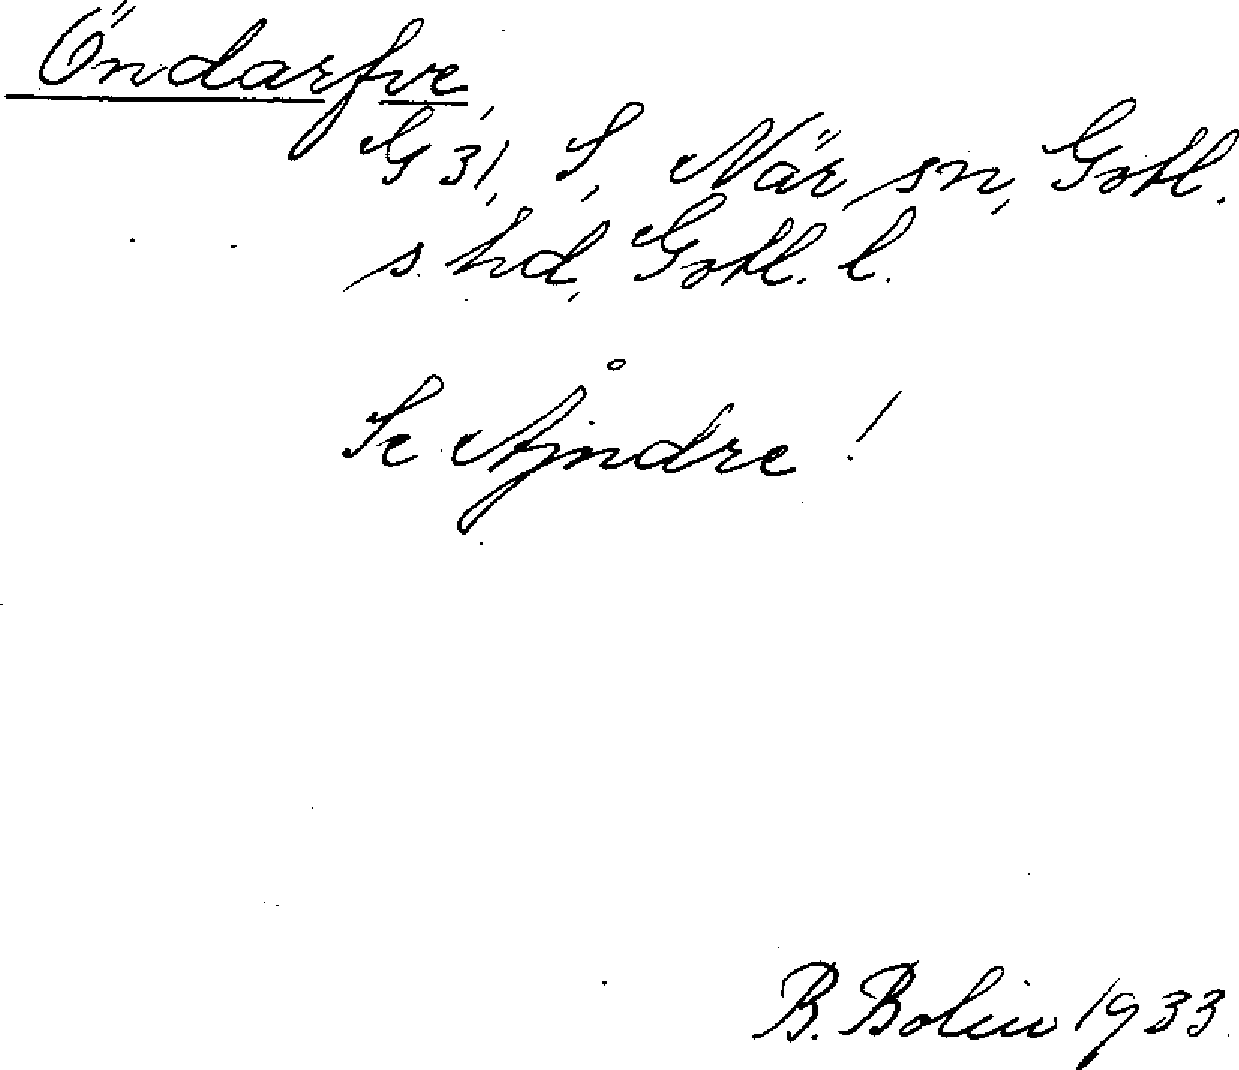 Öndarfve,
G 31, S, När sn, Gotl.
s. hd, Gotl. l.
Se Åjndre!
B. Bolin 1933.